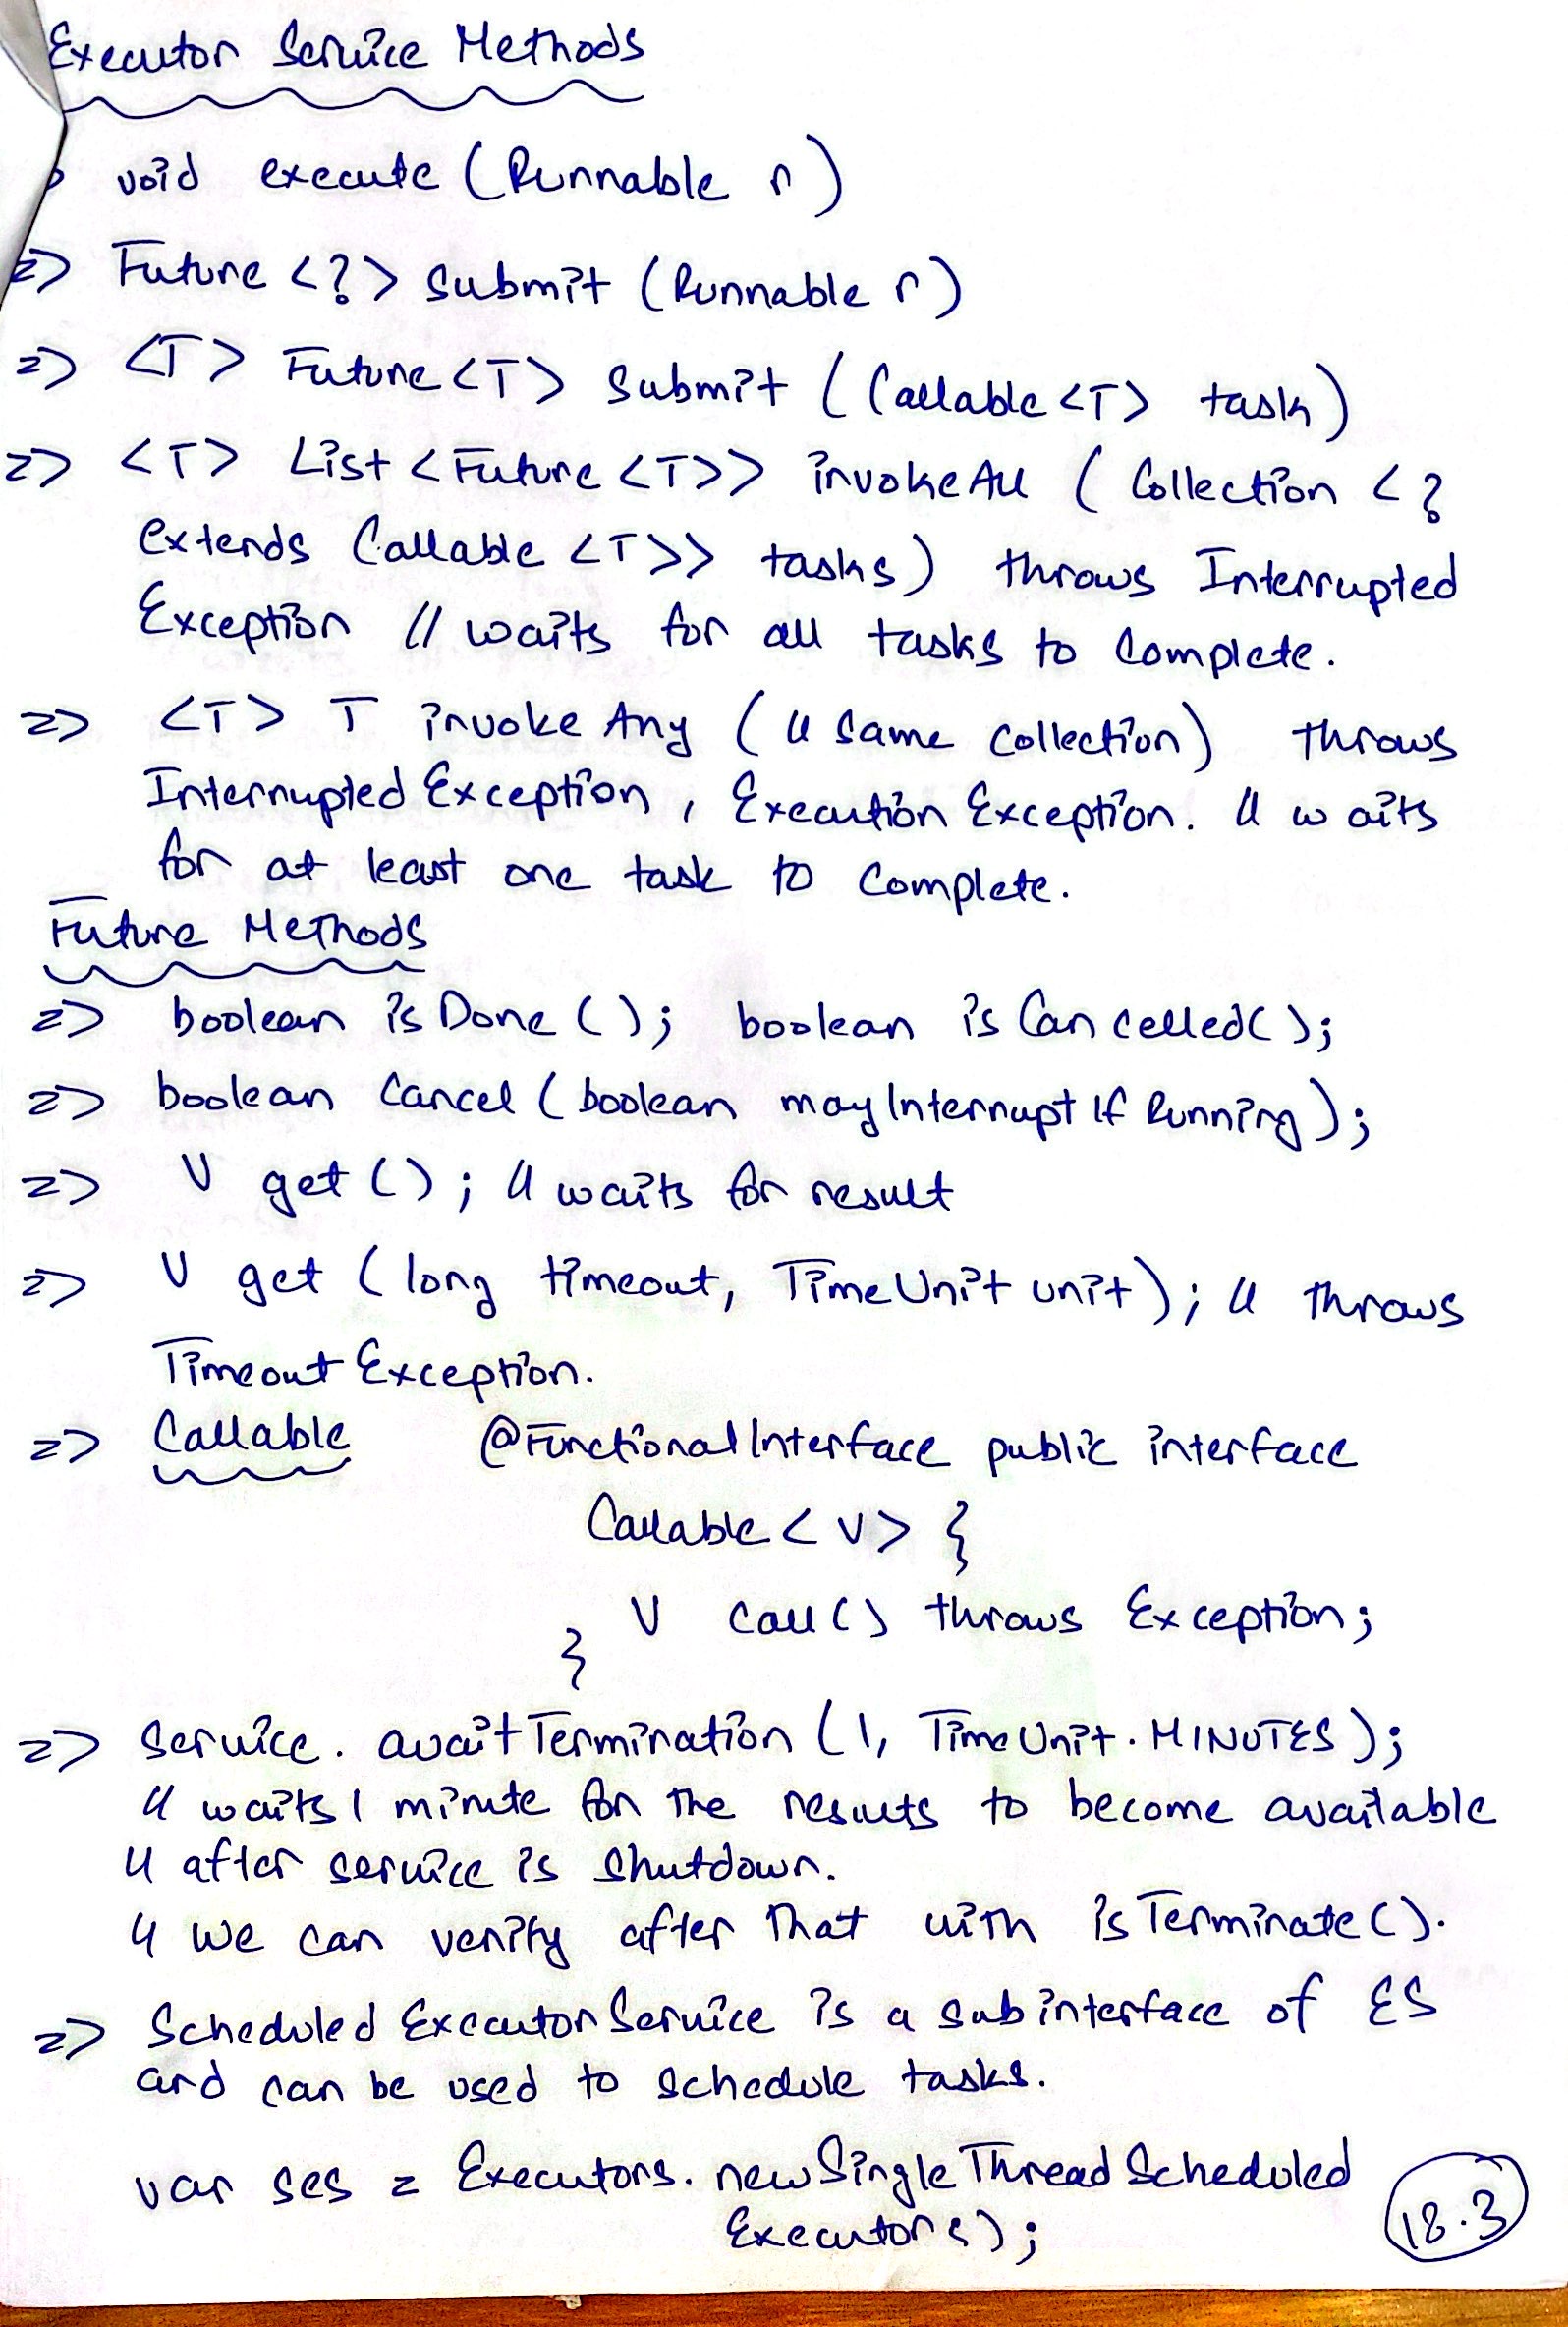 Executor Service Methods
void execute (Runnable r)
=> Future <?> submit (Runnable r)
=> <T> Future<T> submit ( Callable <T> task)
=> <T> List < Future <T>> invokeAll ( Collection <?
extends Callable <T>> tasks) throws Interrupted
Exception // waits for all tasks to complete.
=> <T> T invoke Any ( // same collection) throws
Interrupted Exception , Execution Exception. // waits
for at least one task to complete.
Future Methods
=> boolean is Done (); boolean is Cancelled();
=> boolean cancel ( boolean may Interrupt If Running );
=> V get (); // waits for result
=> V get ( long timeout, TimeUnit unit); // throws
Timeout Exception.
=> Callable @Functional Interface public interface
Callable < V> {
V call () throws Exception;
}
=> Service. await Termination (1, TimeUnit. MINUTES );
// waits 1 minute for the results to become available
// after service is shutdown.
// We can verify after that with is Terminate ().
=> Scheduled Executor Service is a subinterface of ES
and can be used to schedule tasks.
var ses = Executors. new Single Thread Scheduled
Executor();
18.3